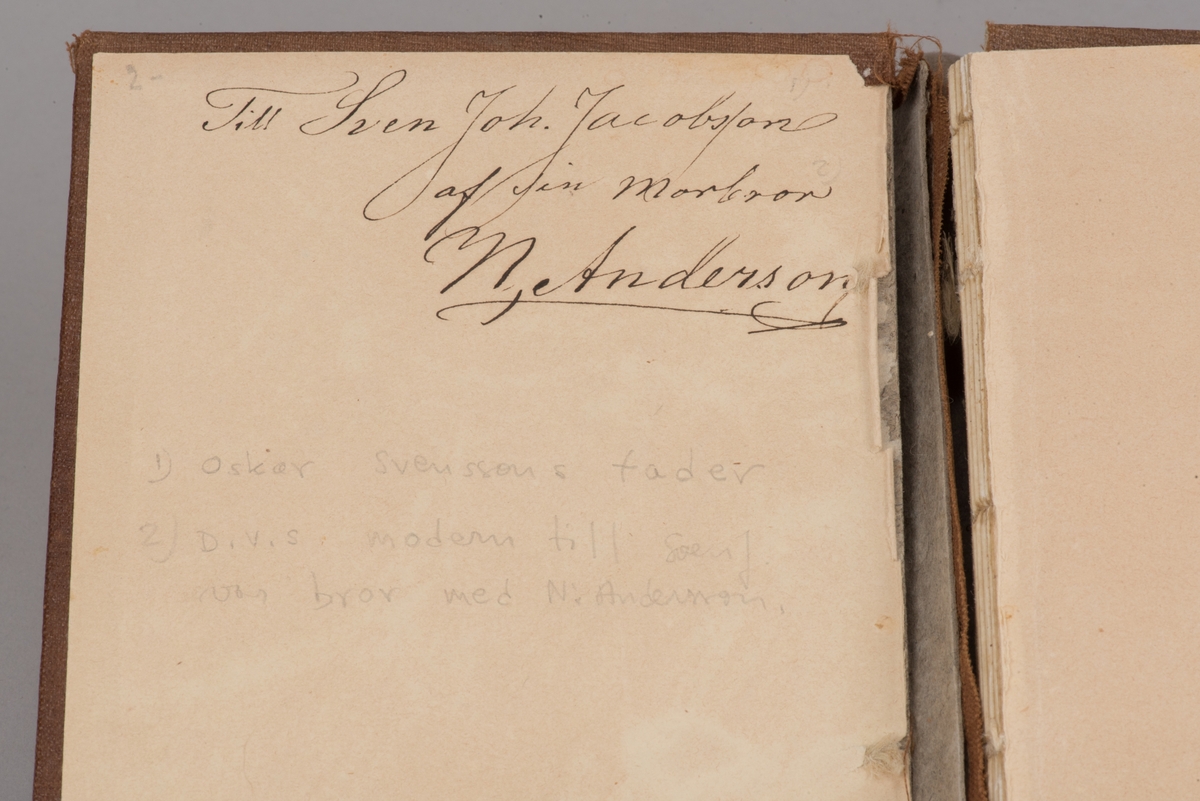 2-
Till Sven Joh. Jacobsson
af sin morbror
N, Anderson
1) Oskar Svenssons fader
2) D.v.s. modern till Sven J
var bror med N. Andersson.